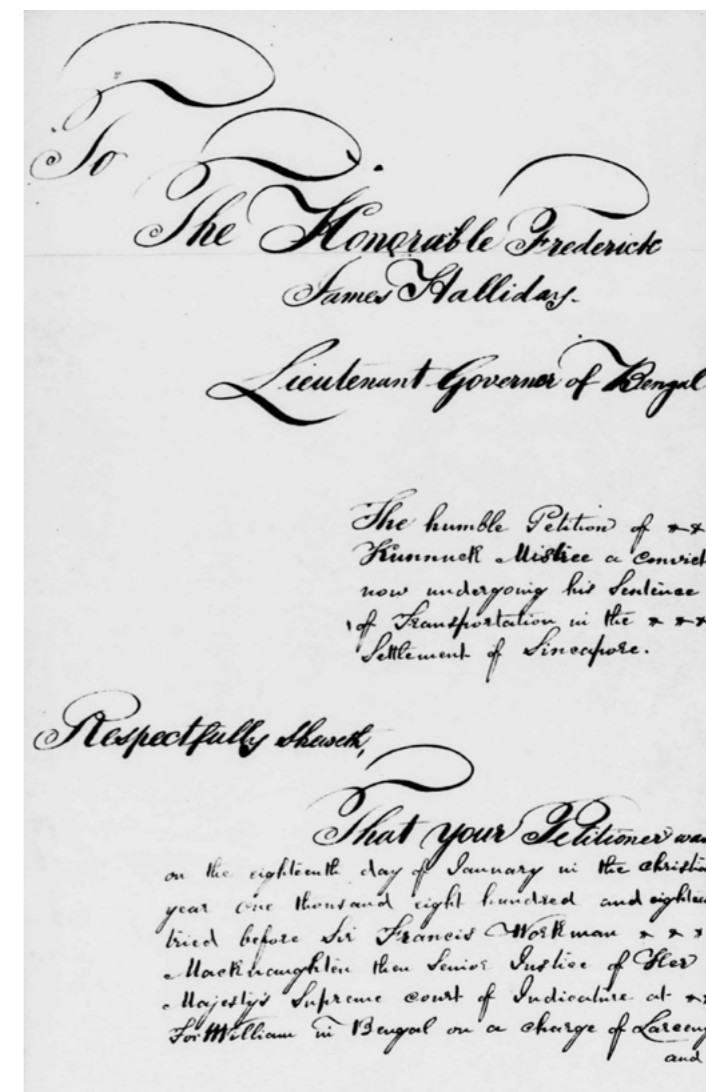 To
The Honorable Frederick
James Halliday.
Lieutenant Governor of Bengal
The humble Petition of × ×
Kunnuck Mistree a Convict
now undergoing his Sentence
of Transportation in the × × ×
Settlement of Sincapore.
Respectfully Sheweth,
That your Petitioner was
on the eighteenth day of January in the Christia
year One thousand eight hundred and eightee
tried before Sir Francis Workman × × ×
Macknaughten then Senior Justice of Her
Majesty's Supreme court of Judicature at × ×
For William in Bengal on a charge of Larceny
and